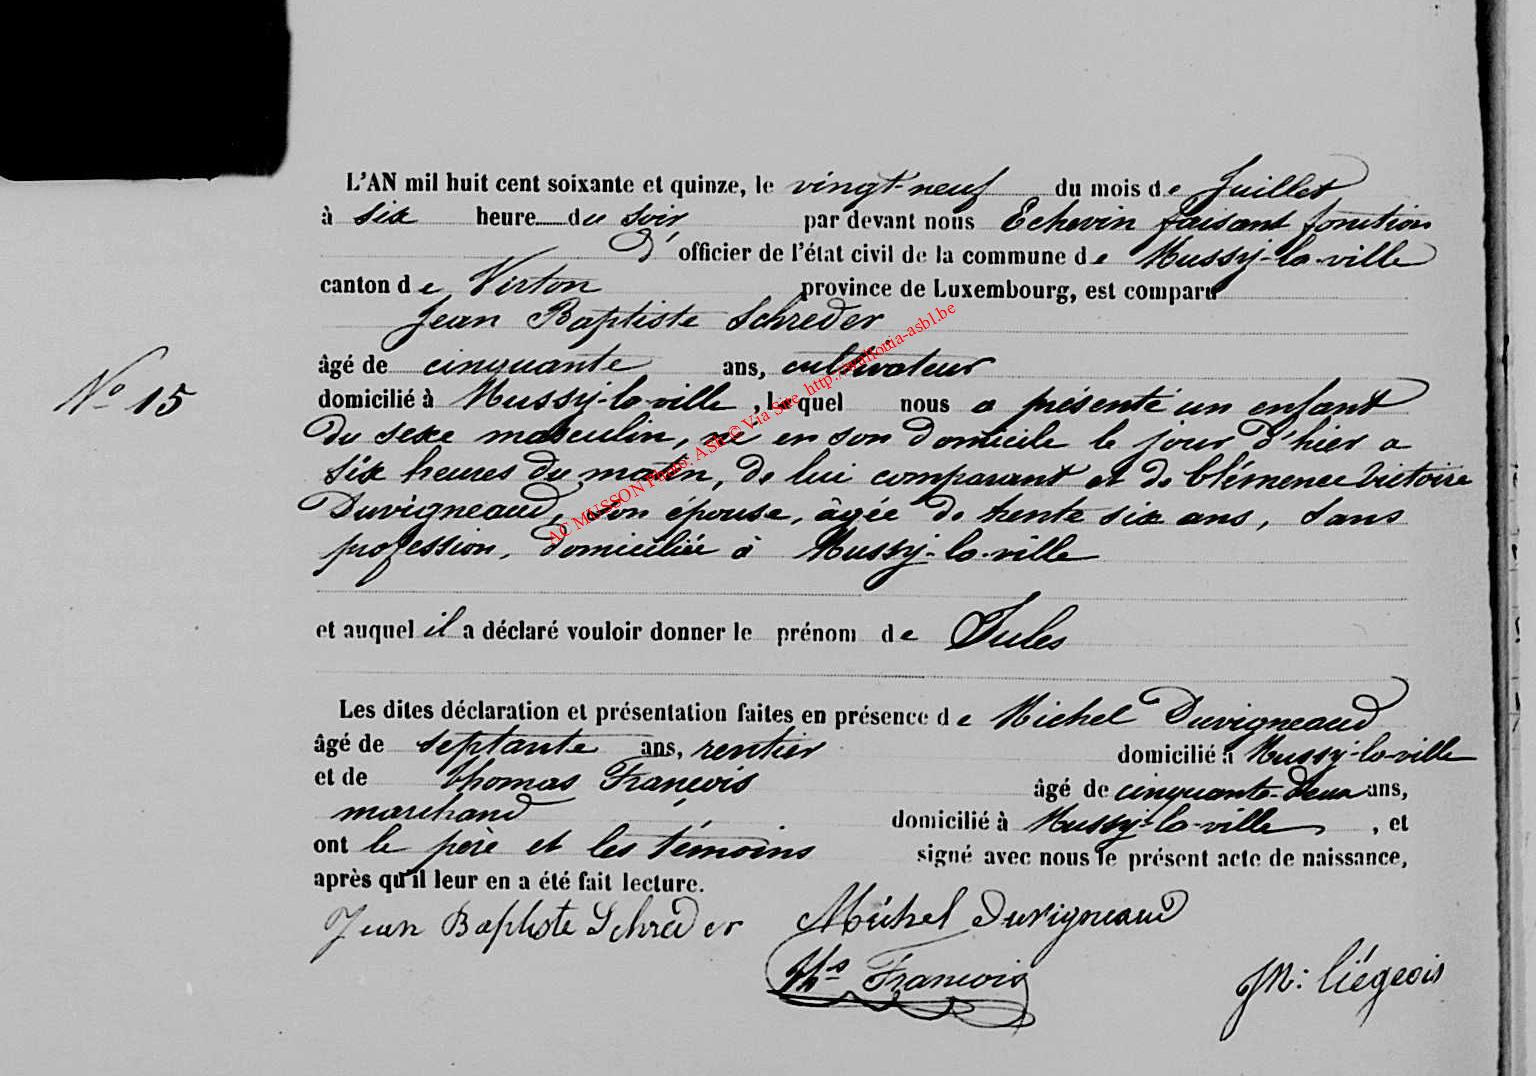 L'AN mil huit cent soixante et quinze, le vingt-neuf du mois de Juillet
à six heure du soir par devant nous Echevin faisant fonction
d'officier de l'état civil de la commune de Mussy-la-ville
canton de Virton province de Luxembourg, est comparu
Jean Baptiste Schreder,
âgé de cinquante ans, cultivateur
N° 15
domicilié à Mussy-la-ville, lequel nous a présenté un enfant
du sexe masculin, né en son domicile le jour d'hier a
six heures du matin, de lui comparant et de Clémence Victoire
Duvigneaud, son épouse, âgée de trente six ans, sans
profession, domiciliée à Mussy-la-ville
et auquel il a déclaré vouloir donner le prénom de Jules
Les dites déclaration et présentation faites en présence de Michel Duvigneaud
âgé de septante ans, rentier domicilié à Mussy-la-ville
et de Thomas François âgé de cinquante-deux ans,
marchand domicilié à Mussy-la-ville, et
ont le père et les témoins signé avec nous le présent acte de naissance,
après qu'il leur en a été fait lecture.
Jean Baptiste Schreder Michel Duvigneaud
Ths François JN: Liégeois
AC MUSSON Photo: ASBL © Via Site http://wallonia-asbl.be